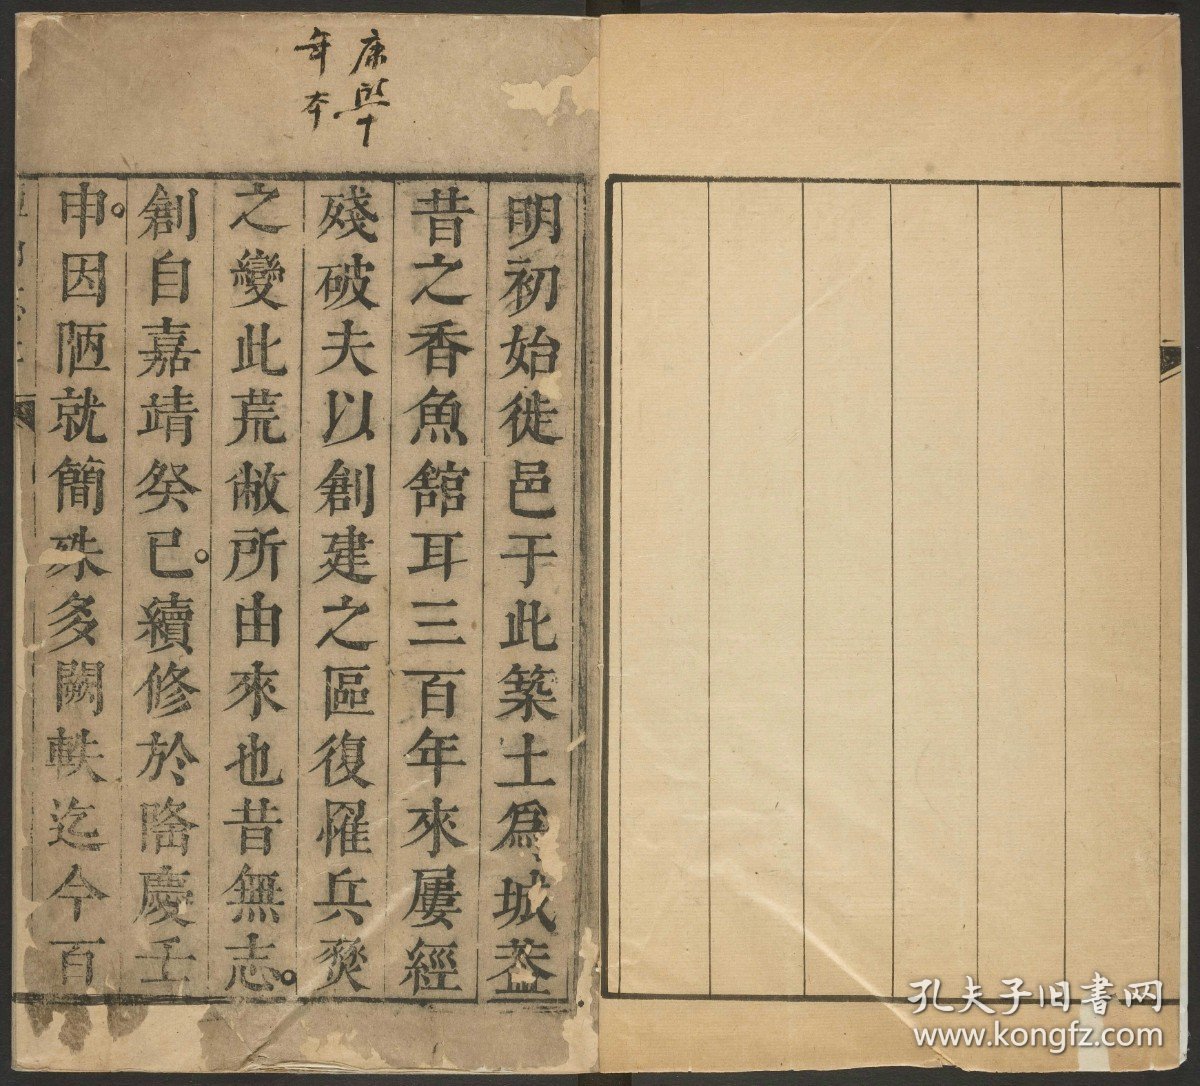 康熙十
年本
明初始徙邑于此築土爲城葢
昔之香魚舘耳三百年來屢經
殘破夫以創建之區復罹兵燹
之變此荒敝所由來也昔無志。
創自嘉靖癸巳。續修於隆慶壬
申。因陋就簡殊多闕軼迄今百
孔夫子旧書网
www.kongfz.com